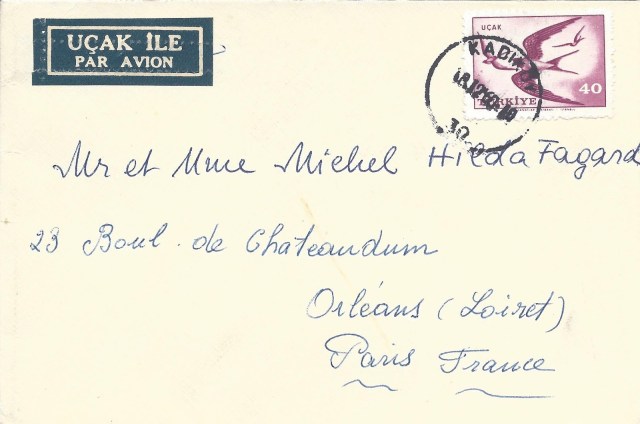 UÇAK İLE
PAR AVION
UÇAK
40
TÜRKİYE
Mr et Mme Michel Hilda Fagard
23 Boul. de Chateaudum
Orléans (Loiret)
Paris France